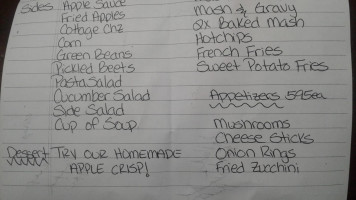 Sides Apple Sauce
Fried Apples
Cottage Chz
Corn
Green Beans
Pickled Beets
Pasta Salad
Cucumber Salad
Side Salad
Cup of Soup
Dessert TRY OUR HOMEMADE
APPLE CRISP!
Mash & Gravy
Baked Mash
Hotchips
French Fries
Sweet Potato Fries
Appetizers 5.95ea
Mushrooms
Cheese Sticks
Onion Rings
Fried Zucchini